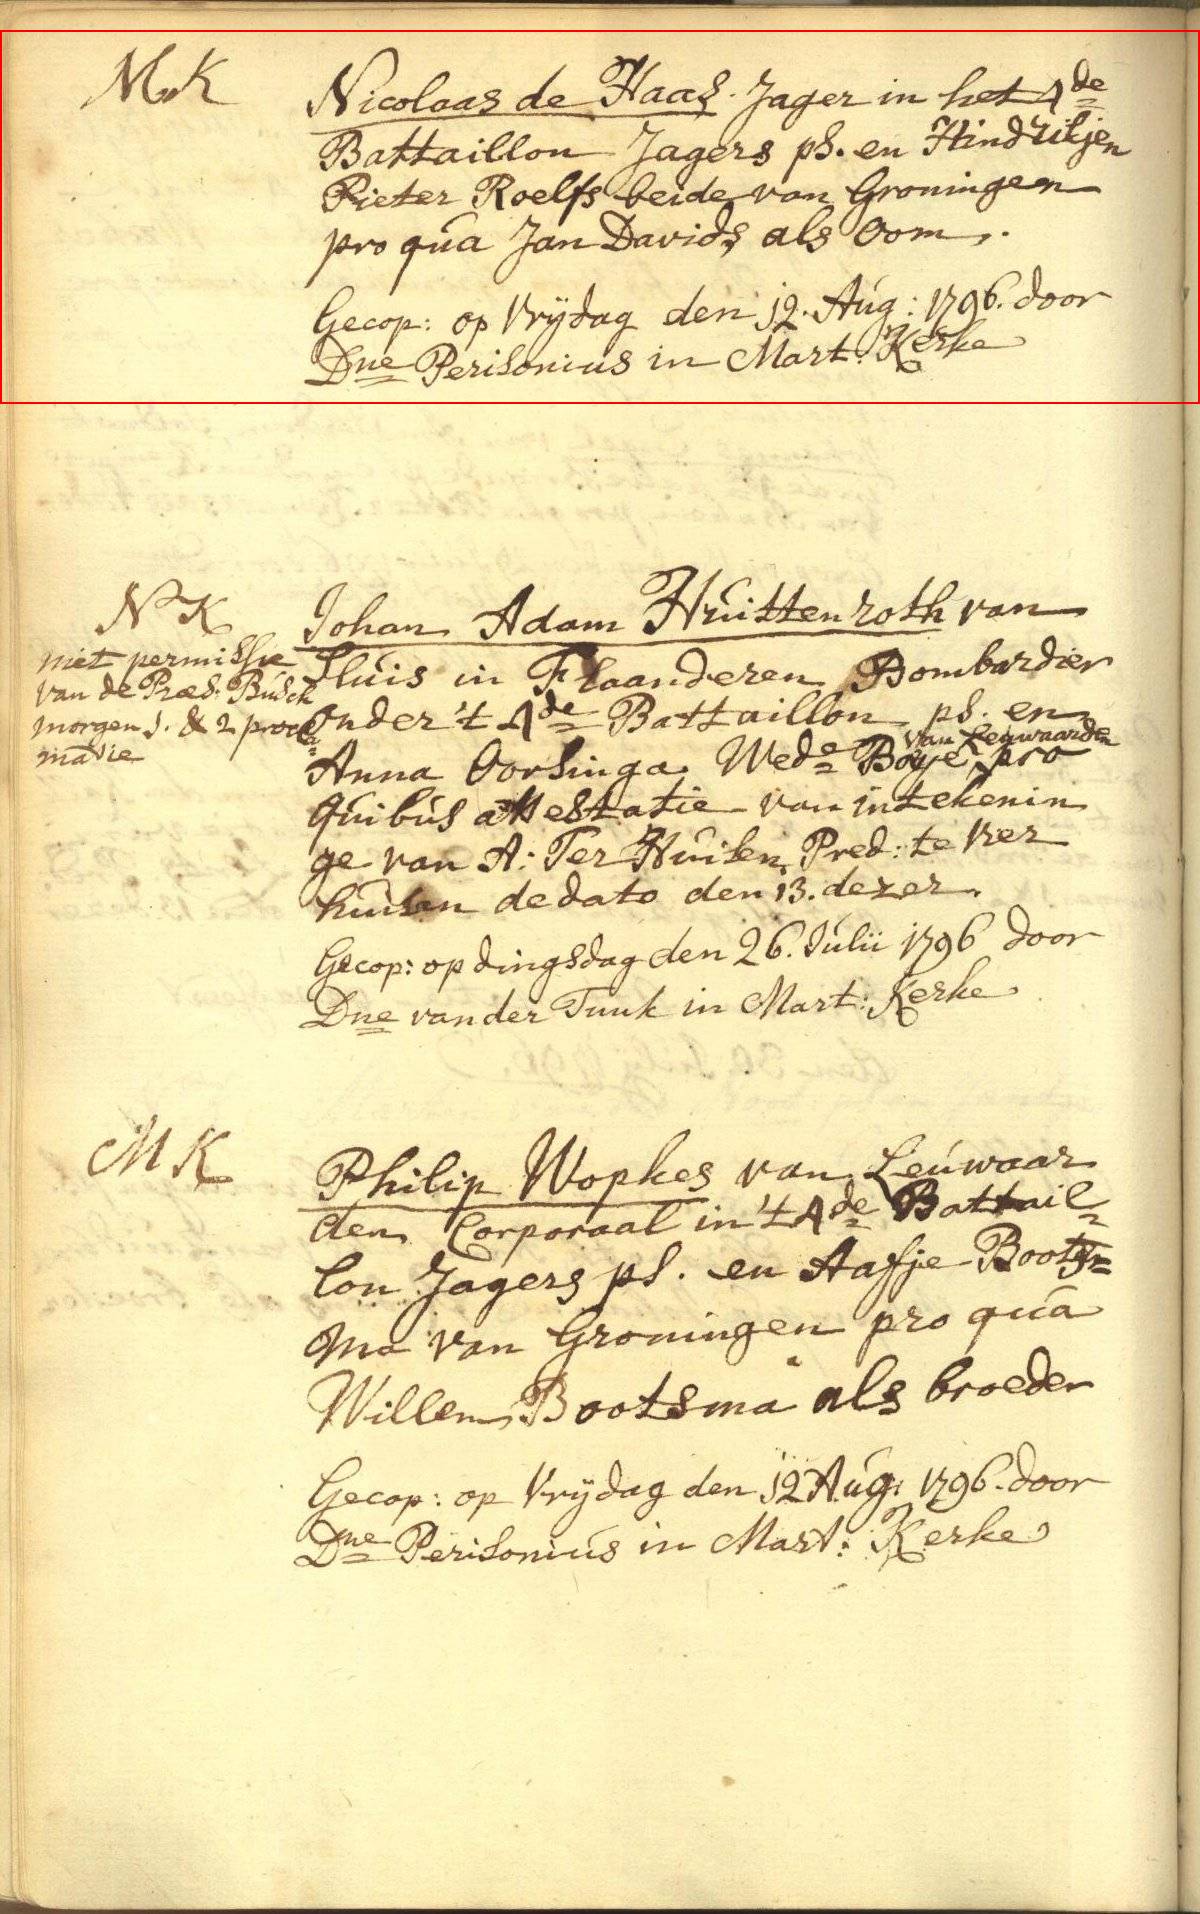 M K
Nicolaas de Haas. Jager in het 4de
Battaillon Jagers ps. en Hindrikjen
Pieter Roelfs beide van Groningen
pro qua Jan Davids als Oom.
Gecop: op Vrijdag den 12. Aug: 1796. door
Dne Perisonius in Mart: Kerke
N K
met permissie
van de Præs: Busch
morgen 1. & 2 procla-
matie
Johan Adam Hruittenroth van
Sluis in Flaanderen Bombardier
onder 't 4de Battaillon ps. en
van Leeuwaarden
Anna Oorsinga Wede Boye, pro
quibus attestatie van intekenin
ge van A: Ter Huisen Pred: te Vier
huisen de dato den 13. dezer.
Gecop: op dingsdag den 26. Julii 1796 door
Dne van der Tuuk in Mart: Kerke
M K
Philip Wopkes van Leuwaar
den Corporaal in 't 4de Battail=
lon Jagers ps. en Aafje Boots=
ma van Groningen pro qua
Willem Bootsma als broeder
Gecop: op Vrijdag den 12 Aug: 1796. door
Dne Perisonius in Mart: Kerke